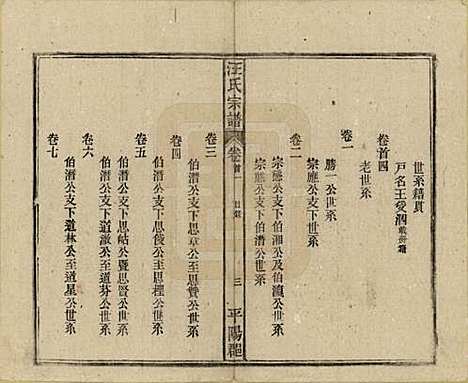 世系籍貫
戶名王愛泗
卷首四
老世系
卷一
勝一公世系
宗應公支下世系
卷二
宗應公支下伯湘公及伯瀛公世系
宗應公支下伯潛公世系
汪氏宗譜
卷首一
目錄
三
平陽郡
卷三
伯潛公支下思章公至思贊公世系
卷四
伯潛公支下思俊公至思程公世系
卷五
伯潛公支下思祜公暨思賢公世系
卷六
伯潛公支下道激公至道芬公世系
卷七
伯潛公支下道林公至道星公世系